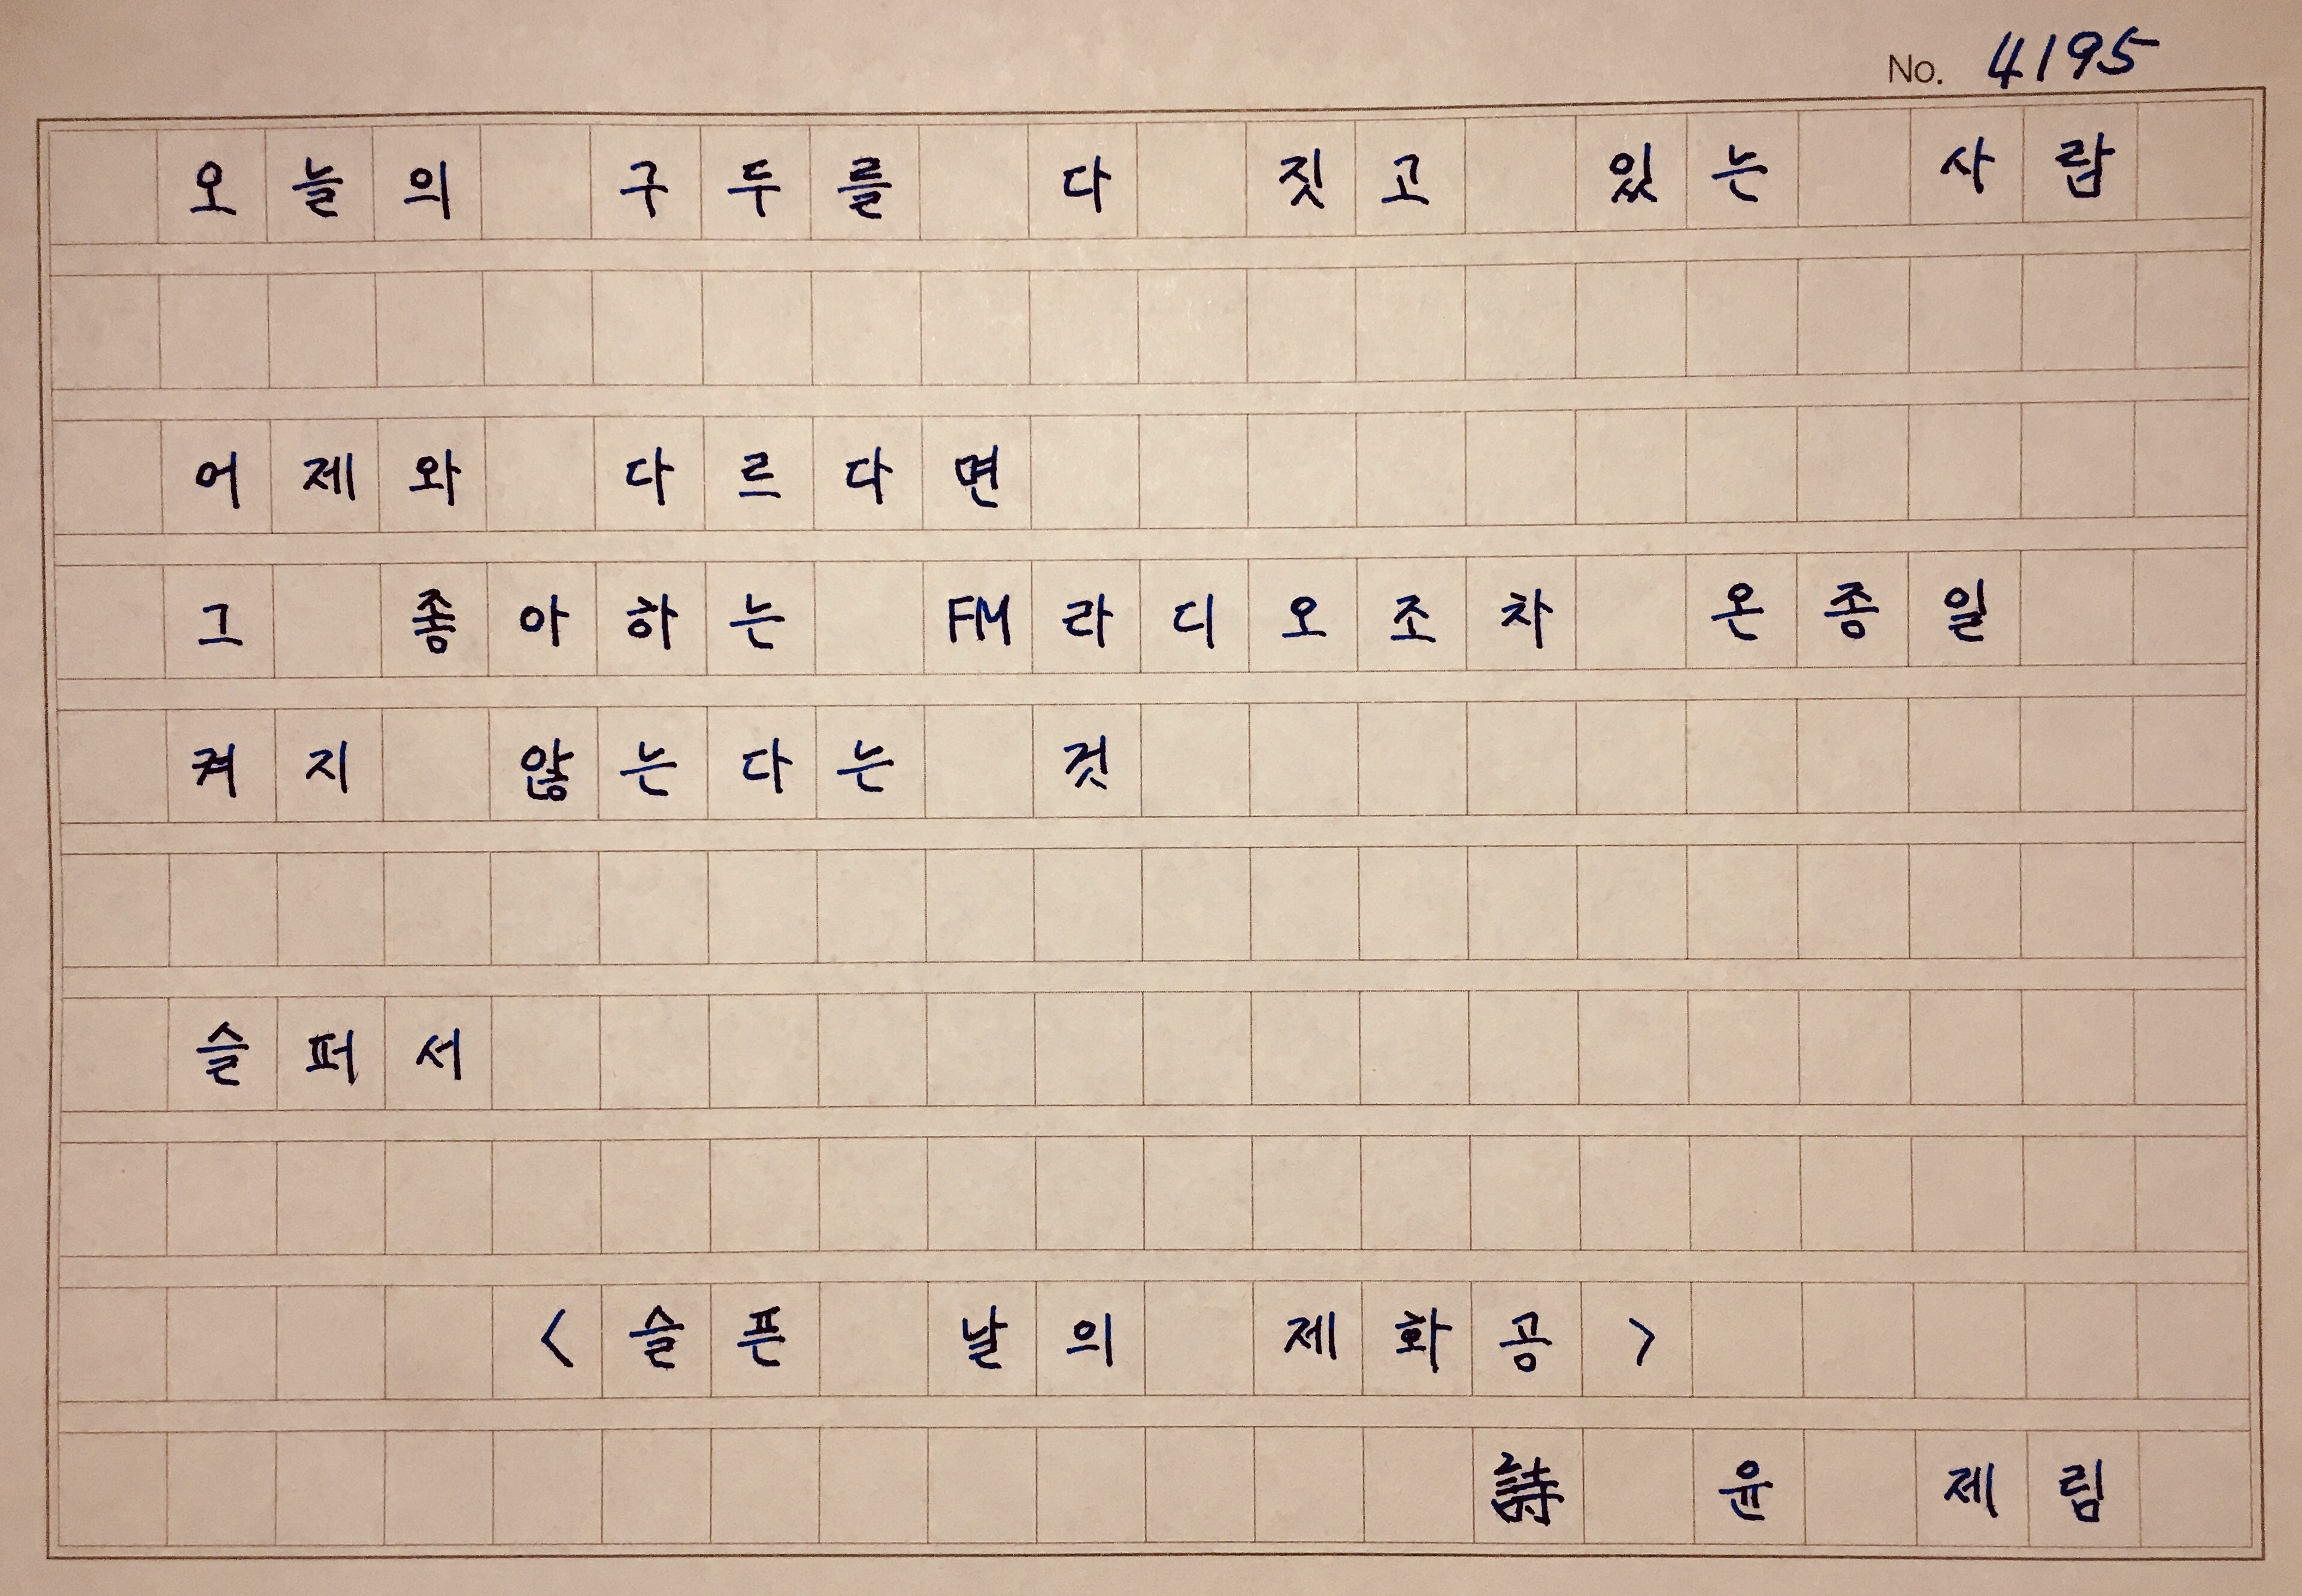 No. 4195
오늘의 구두를 다 짓고 있는 사람
어제와 다르다면
그 좋아하는 FM라디오조차 온종일
켜지 않는다는 것
슬퍼서
<슬픈 날의 제화공>
詩 윤 제림